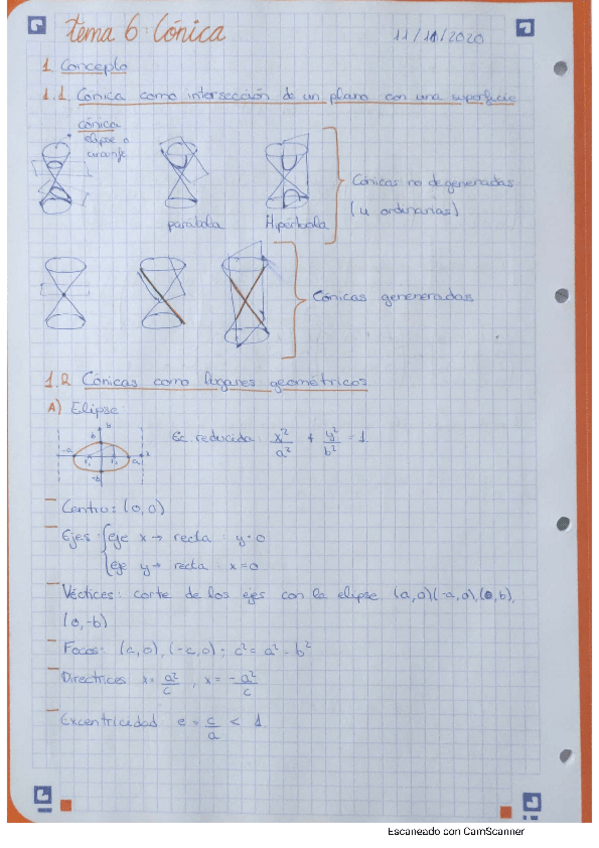 Tema 6: Cónica
11/11/2020
1 Concepto
1.1. Cónica como intersección de un plano con una superficie
cónica
elipse o
parábola
Hipérbola
Cónicas no degeneradas
(u ordinarias)
Cónicas geneneradas
1.2 Cónicas como lugares geométricos
A) Elipse:
Ec reducida: x²/a² + y²/b² = 1.
- Centro: (0,0)
- Ejes: { eje x → recta : y=0
eje y → recta : x=0
- Véctices: corte de los ejes con la elipse (a,0)(-a,0),(0,b),
(0,-b)
- Focos: (c,0), (-c,0) ; c² = a² - b²
- Directrices x = a²/c , x = -a²/c
- Excentricidad e = c/a < 1.
Escaneado con CamScanner